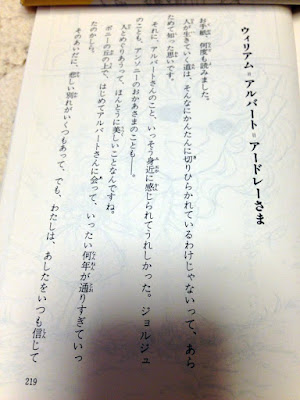 ウィリアム＝アルバート＝アードレーさま
お手紙、何度も読みました。
人が生きていく道は、そんなにかんたんに切りひらかれているわけじゃないって、あら
ためて知った思いです。
それに、アルバートさんのこと、いっそう身近に感じられてうれしかった。ジョルジュ
のことも、アンソニーのおかあさまのことも――。
人とめぐりあうって、ほんとうに美しいことなんですね。
ポニーの丘の上で、はじめてアルバートさんに会って、いったい何年が通りすぎていっ
たのかしら。
そのあいだに、悲しい別れがいくつもあって、でも、わたしは、あしたをいつも信じて
219